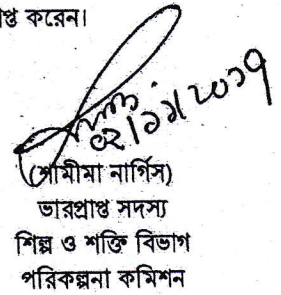 প্ত করেন।
০২/১১/২০১৭
(শামীমা নার্গিস)
ভারপ্রাপ্ত সদস্য
শিল্প ও শক্তি বিভাগ
পরিকল্পনা কমিশন